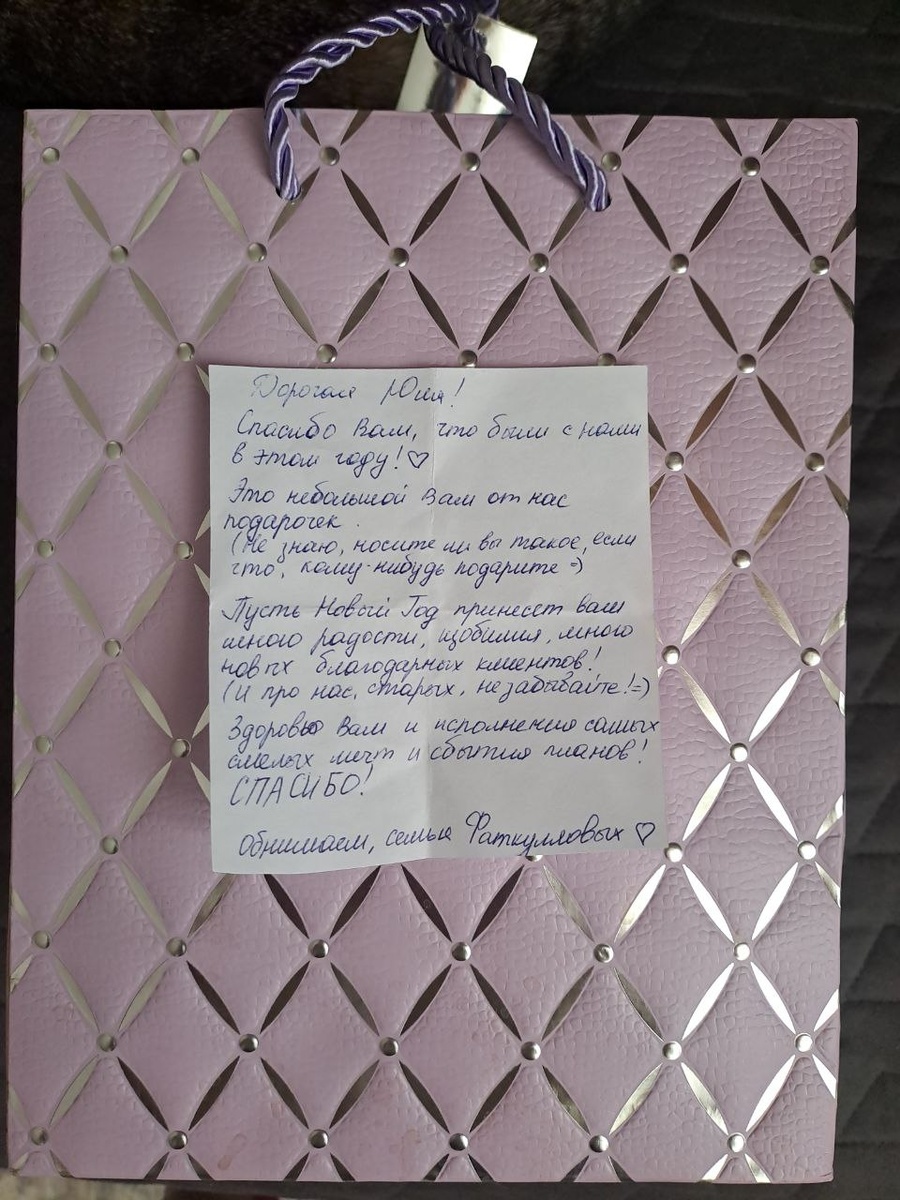 Дорогая Юля!
Спасибо Вам, что были с нами
в этом году!♡
Это небольшой Вам от нас
подарочек.
(Не знаю, носите ли вы такое, если
что, кому-нибудь подарите =)
Пусть Новый Год принесет вам
много радости, изобилия, много
новых благодарных клиентов!
(И про нас, старых, не забывайте! =)
Здоровья Вам и исполнения самых
смелых мечт и сбытия планов!
СПАСИБО!
Обнимаем, семья Фаткулловых ♡